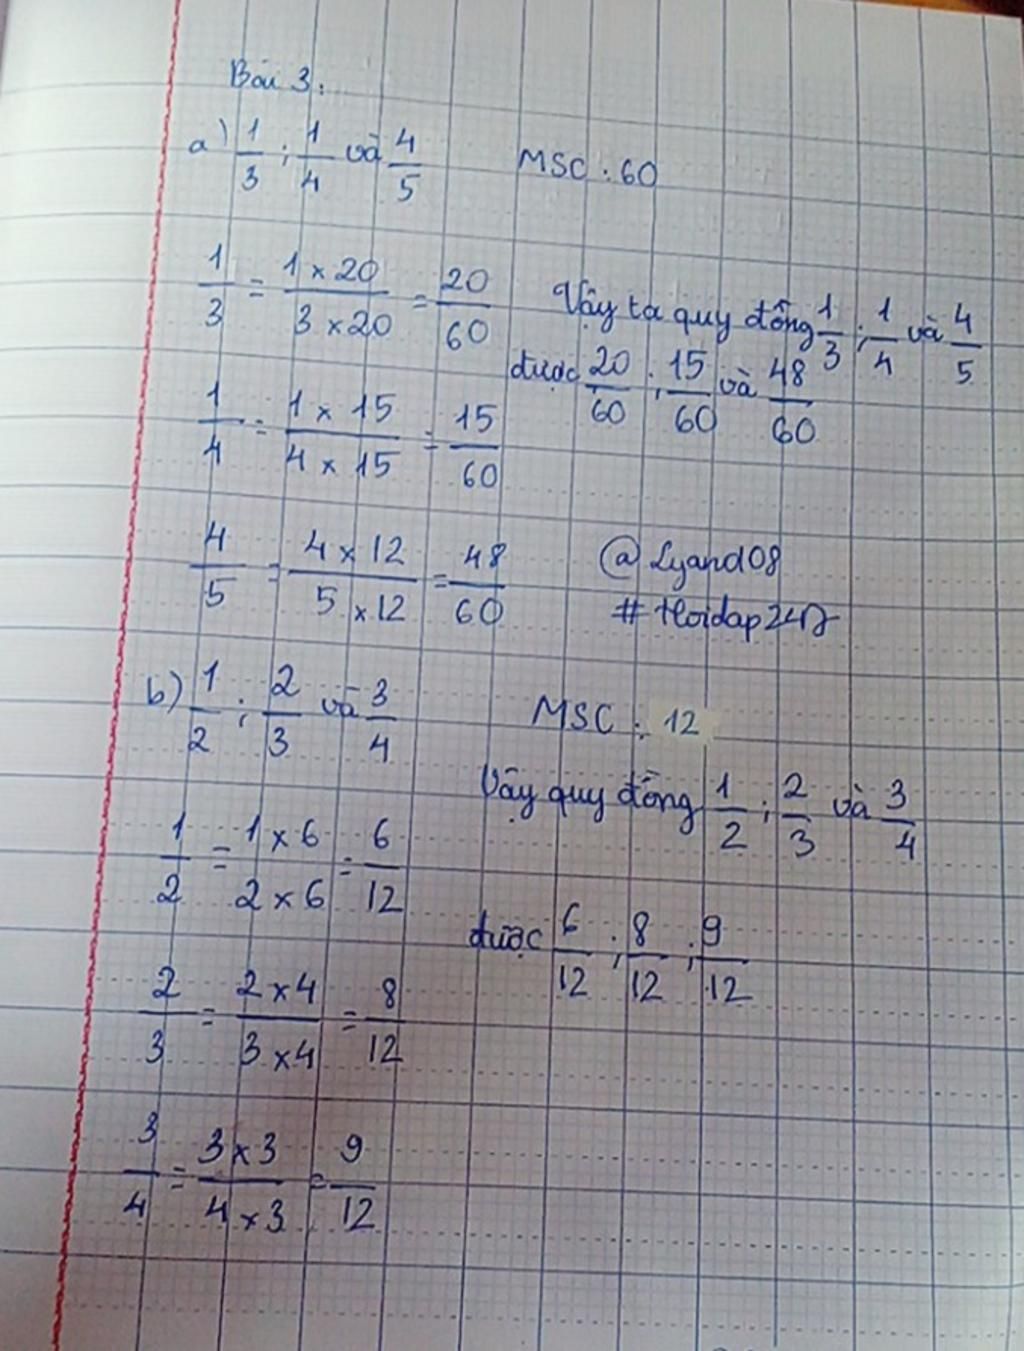 Bài 3:
a) 1/3 ; 1/4 và 4/5 MSC : 60
1/3 = 1 x 20 / 3 x 20 = 20/60
Vậy ta quy đồng 1/3 ; 1/4 và 4/5
được 20/60 ; 15/60 và 48/60
1/4 = 1 x 15 / 4 x 15 = 15/60
4/5 = 4 x 12 / 5 x 12 = 48/60
@Lyand08
#Hoidap247
b) 1/2 ; 2/3 và 3/4 MSC : 12
Vậy quy đồng 1/2 ; 2/3 và 3/4
1/2 = 1 x 6 / 2 x 6 = 6/12
được 6/12 ; 8/12 ; 9/12
2/3 = 2 x 4 / 3 x 4 = 8/12
3/4 = 3 x 3 / 4 x 3 = 9/12